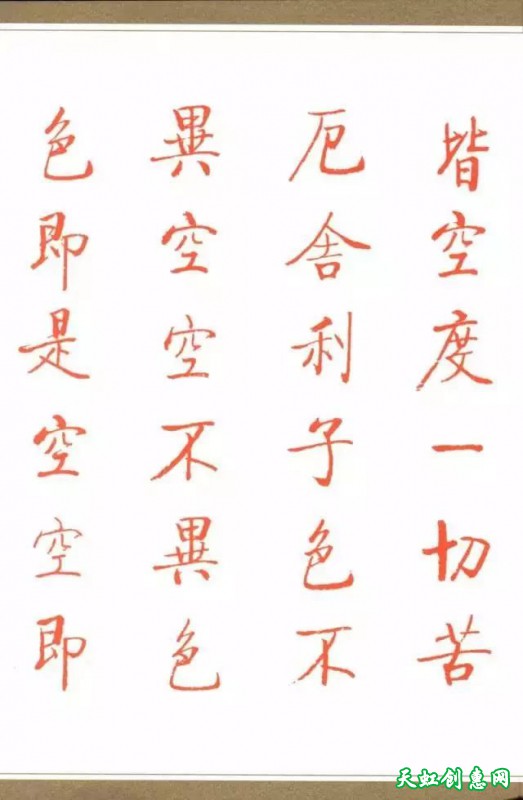 皆空度一切苦
厄舍利子色不
異空空不異色
色即是空空即
天虹创惠网